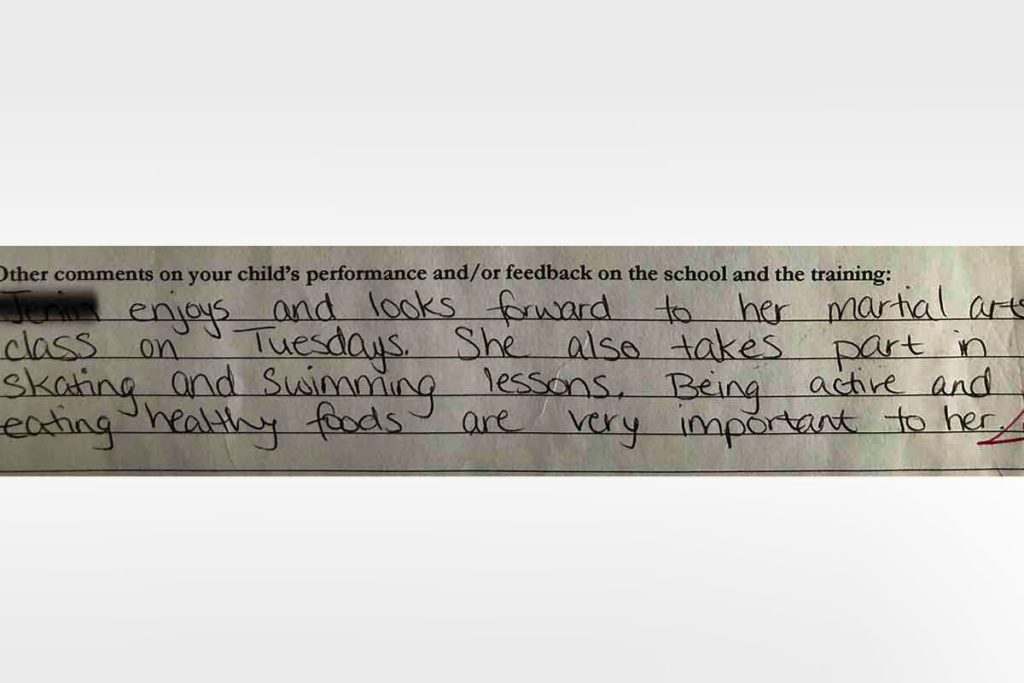 Other comments on your child's performance and/or feedback on the school and the training:
enjoys and looks forward to her martial arts
class on Tuesdays. She also takes part in
skating and swimming lessons. Being active and
eating healthy foods are very important to her.